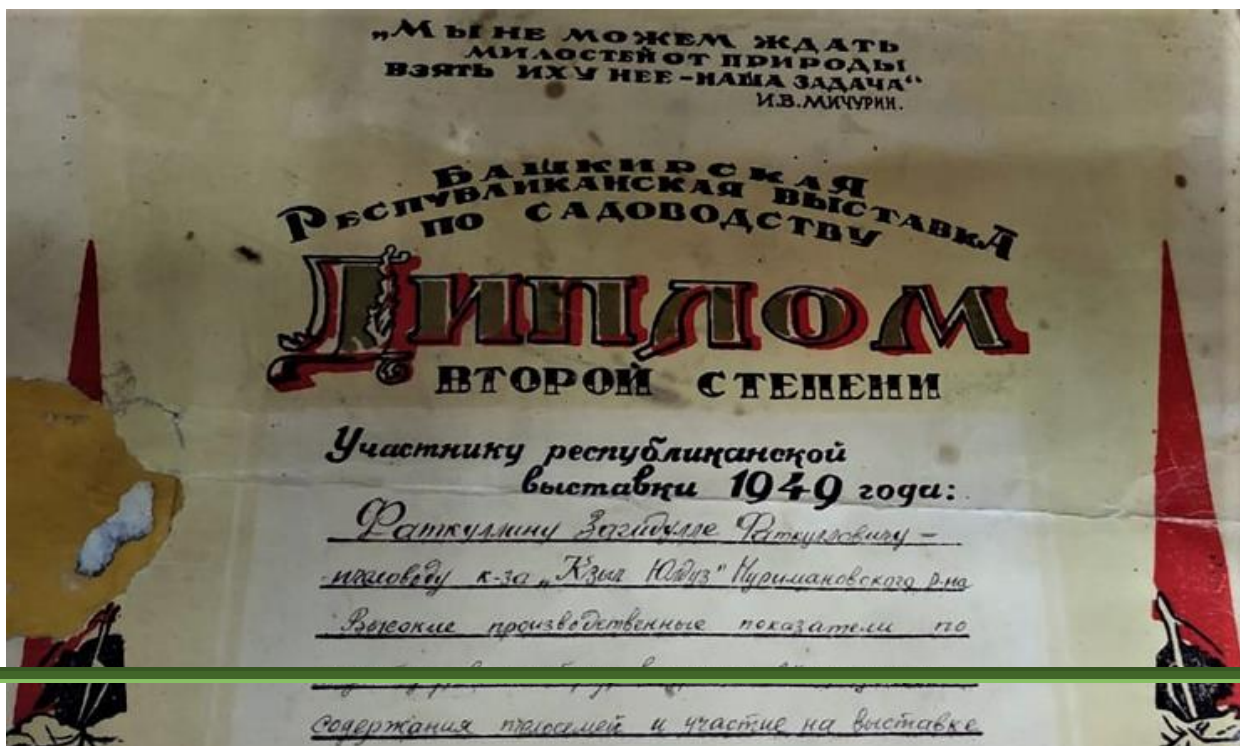 „МЫ НЕ МОЖЕМ ЖДАТЬ
МИЛОСТЕЙ ОТ ПРИРОДЫ
ВЗЯТЬ ИХ У НЕЕ – НАША ЗАДАЧА“
И.В. МИЧУРИН.
БАШКИРСКАЯ
РЕСПУБЛИКАНСКАЯ ВЫСТАВКА
ПО САДОВОДСТВУ
ДИПЛОМ
ВТОРОЙ СТЕПЕНИ
Участнику республиканской
выставки 1949 года:
Фаткуллину Загидулле Фаткулловичу –
пчеловоду к-за „Кзыл Юлдуз" Нуримановского р-на
Высокие производственные показатели по
содержания пчелосемей и участие на выставке